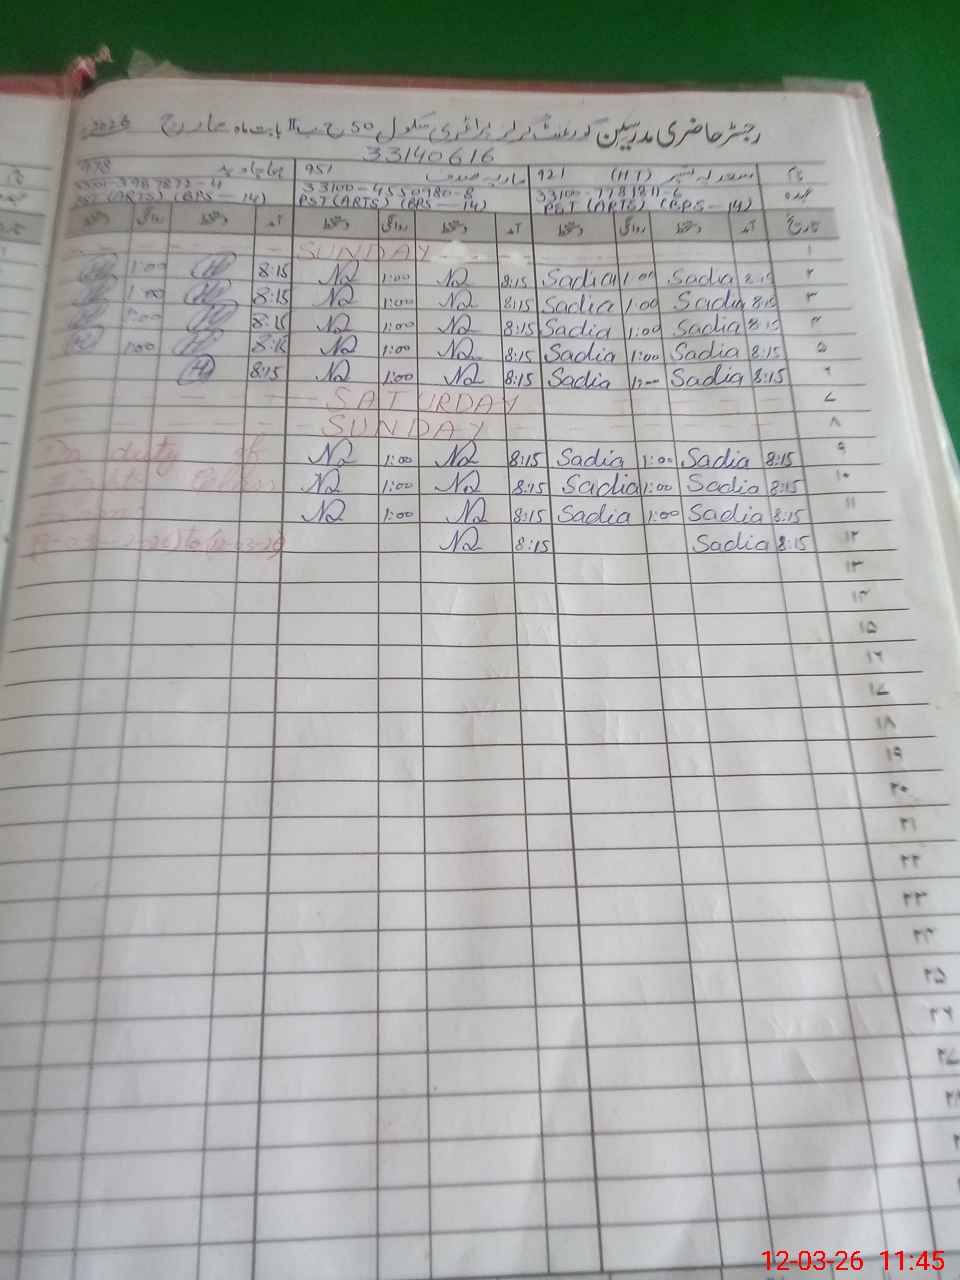 رجسٹر حاضری مدرسین گورنمنٹ گرلز پرائمری سکول 50 ج ب II بابت ماہ مارچ 2026
33140616
نام 921 (HT) 951 978
عہدہ 33100-7781811-6 33100-4550980-8
PST (ARTS) (BPS-14) PST (ARTS) (BPS-14) PST (ARTS) (BPS-14)
تاریخ آمد دستخط روانگی دستخط آمد دستخط روانگی دستخط آمد دستخط روانگی دستخط
۱ SUNDAY
۲ 8:15 Sadia 1:00 Sadia 8:15 N2 1:00 N2 8:15 1:00
۳ 8:15 Sadia 1:00 Sadia 8:15 N2 1:00 N2 8:15 1:00
۴ 8:15 Sadia 1:00 Sadia 8:15 N2 1:00 N2 8:15 1:00
۵ 8:15 Sadia 1:00 Sadia 8:15 N2 1:00 N2 8:15 1:00
۶ 8:15 Sadia 1:00 Sadia 8:15 N2 1:00 N2 8:15
۷ SATURDAY
۸ SUNDAY
۹ 8:15 Sadia 1:00 Sadia 8:15 N2 1:00 N2 On duty of
۱۰ 8:15 Sadia 1:00 Sadia 8:15 N2 1:00 N2
۱۱ 8:15 Sadia 1:00 Sadia 8:15 N2 1:00 N2
۱۲ 8:15 Sadia 8:15 N2
۱۳
۱۴
۱۵
۱۶
۱۷
۱۸
۱۹
۲۰
۲۱
۲۲
۲۳
۲۴
۲۵
۲۶
۲۷
۲۸
12-03-26 11:45